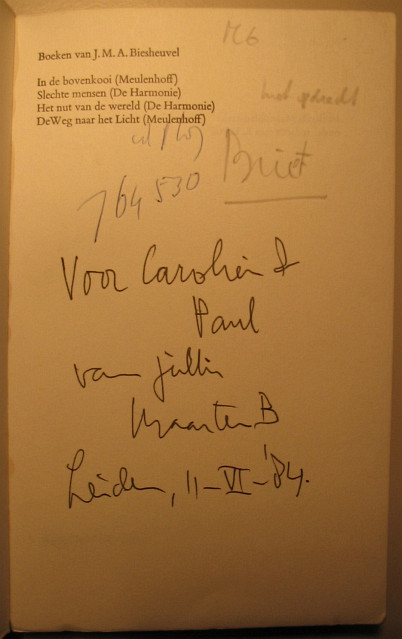 M6
Boeken van J. M. A. Biesheuvel
In de bovenkooi (Meulenhoff)
Slechte mensen (De Harmonie)
Het nut van de wereld (De Harmonie)
DeWeg naar het Licht (Meulenhoff)
met opdracht
764 530
Voor Carolien &
Paul
van jullie
Maarten B
Leiden, 11-VI-'84.